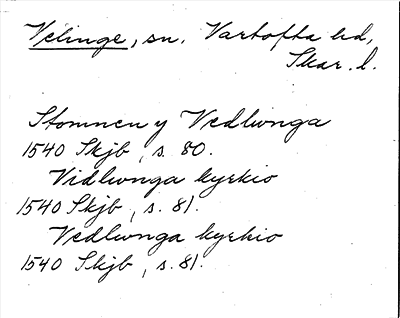 Velinge, sn. Vartofta hd,
Skar. l.
Stomnen y Vedlwnga
1540 Skjb, s. 80.
Vidlwnga kyrkio
1540 Skjb, s. 81.
Vedlwnga kyrkio
1540 Skjb, s. 81.